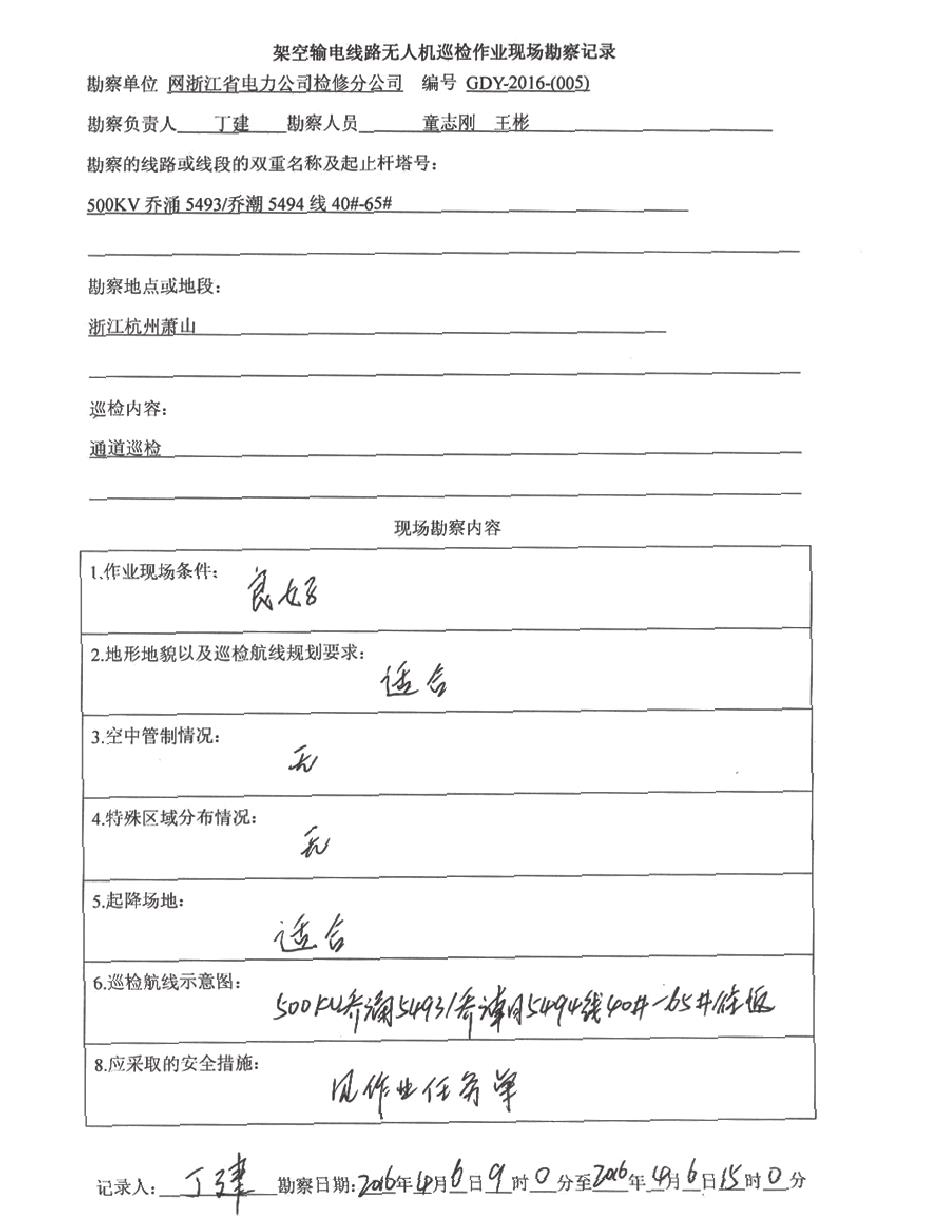 架空输电线路无人机巡检作业现场勘察记录
勘察单位 网浙江省电力公司检修分公司 编号 GDY-2016-(005)
勘察负责人 丁建 勘察人员 童志刚 王彬
勘察的线路或线段的双重名称及起止杆塔号：
500KV 乔涌 5493/乔潮 5494 线 40#-65#
勘察地点或地段：
浙江杭州萧山
巡检内容：
通道巡检
现场勘察内容
1.作业现场条件：
良好
2.地形地貌以及巡检航线规划要求：
适合
3.空中管制情况：
无
4.特殊区域分布情况：
无
5.起降场地：
适合
6.巡检航线示意图：
500KV乔涌5493/乔潮5494线40#-65#往返
8.应采取的安全措施：
见作业任务单
记录人： 丁建 勘察日期：2016年4月6日9时0分至2016年4月6日15时0分